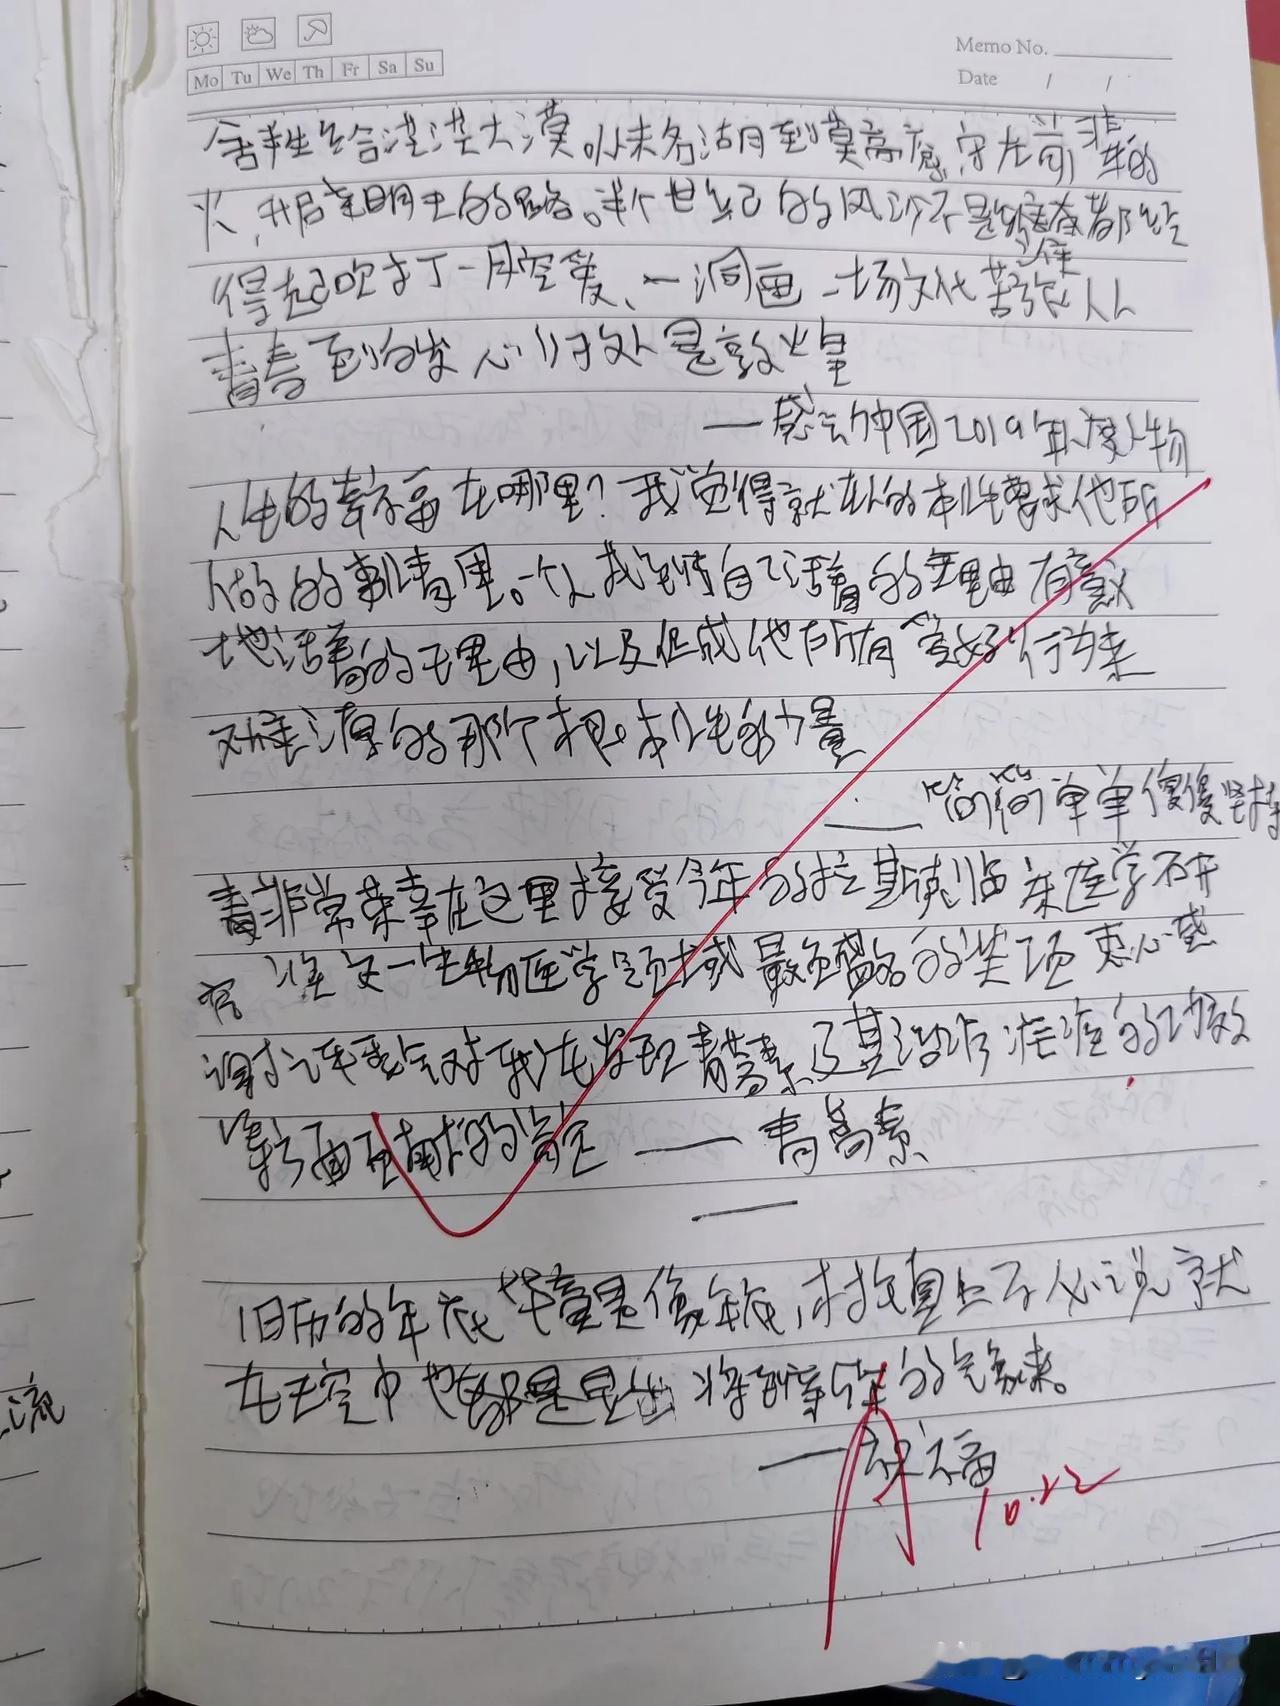 Memo No.
Mo Tu We Th Fr Sa Su
Date / /
舍半生给茫茫大漠。从未名湖到莫高窟,守在前辈的
火,开启明天的路。半个世纪的风沙不是谁都经
得起吹打一月空爱、一洞画一场文化苦旅从
青春到白发心归处是敦煌
——感动中国2019年度人物
人生的幸福在哪里?我觉得就在人的本性要求他所
做的事情里。一个人找到自己活着的理由有意义
地活着的理由,以及促成他所有爱好行动来
源的那个根本性的力量
——简简单单傻傻坚持
青非常荣幸在这里接受今年的拉斯克临床医学研
究 这一生物医学领域最的奖项衷心感
谢评委会对我在发现青蒿素及其治疗疟疾的功效
等方面贡献的肯定——青蒿素
旧历的年底毕竟最像年底,村镇上不必说就
在天空中也显出将到新年的气象来。
——祝福
10.22
流